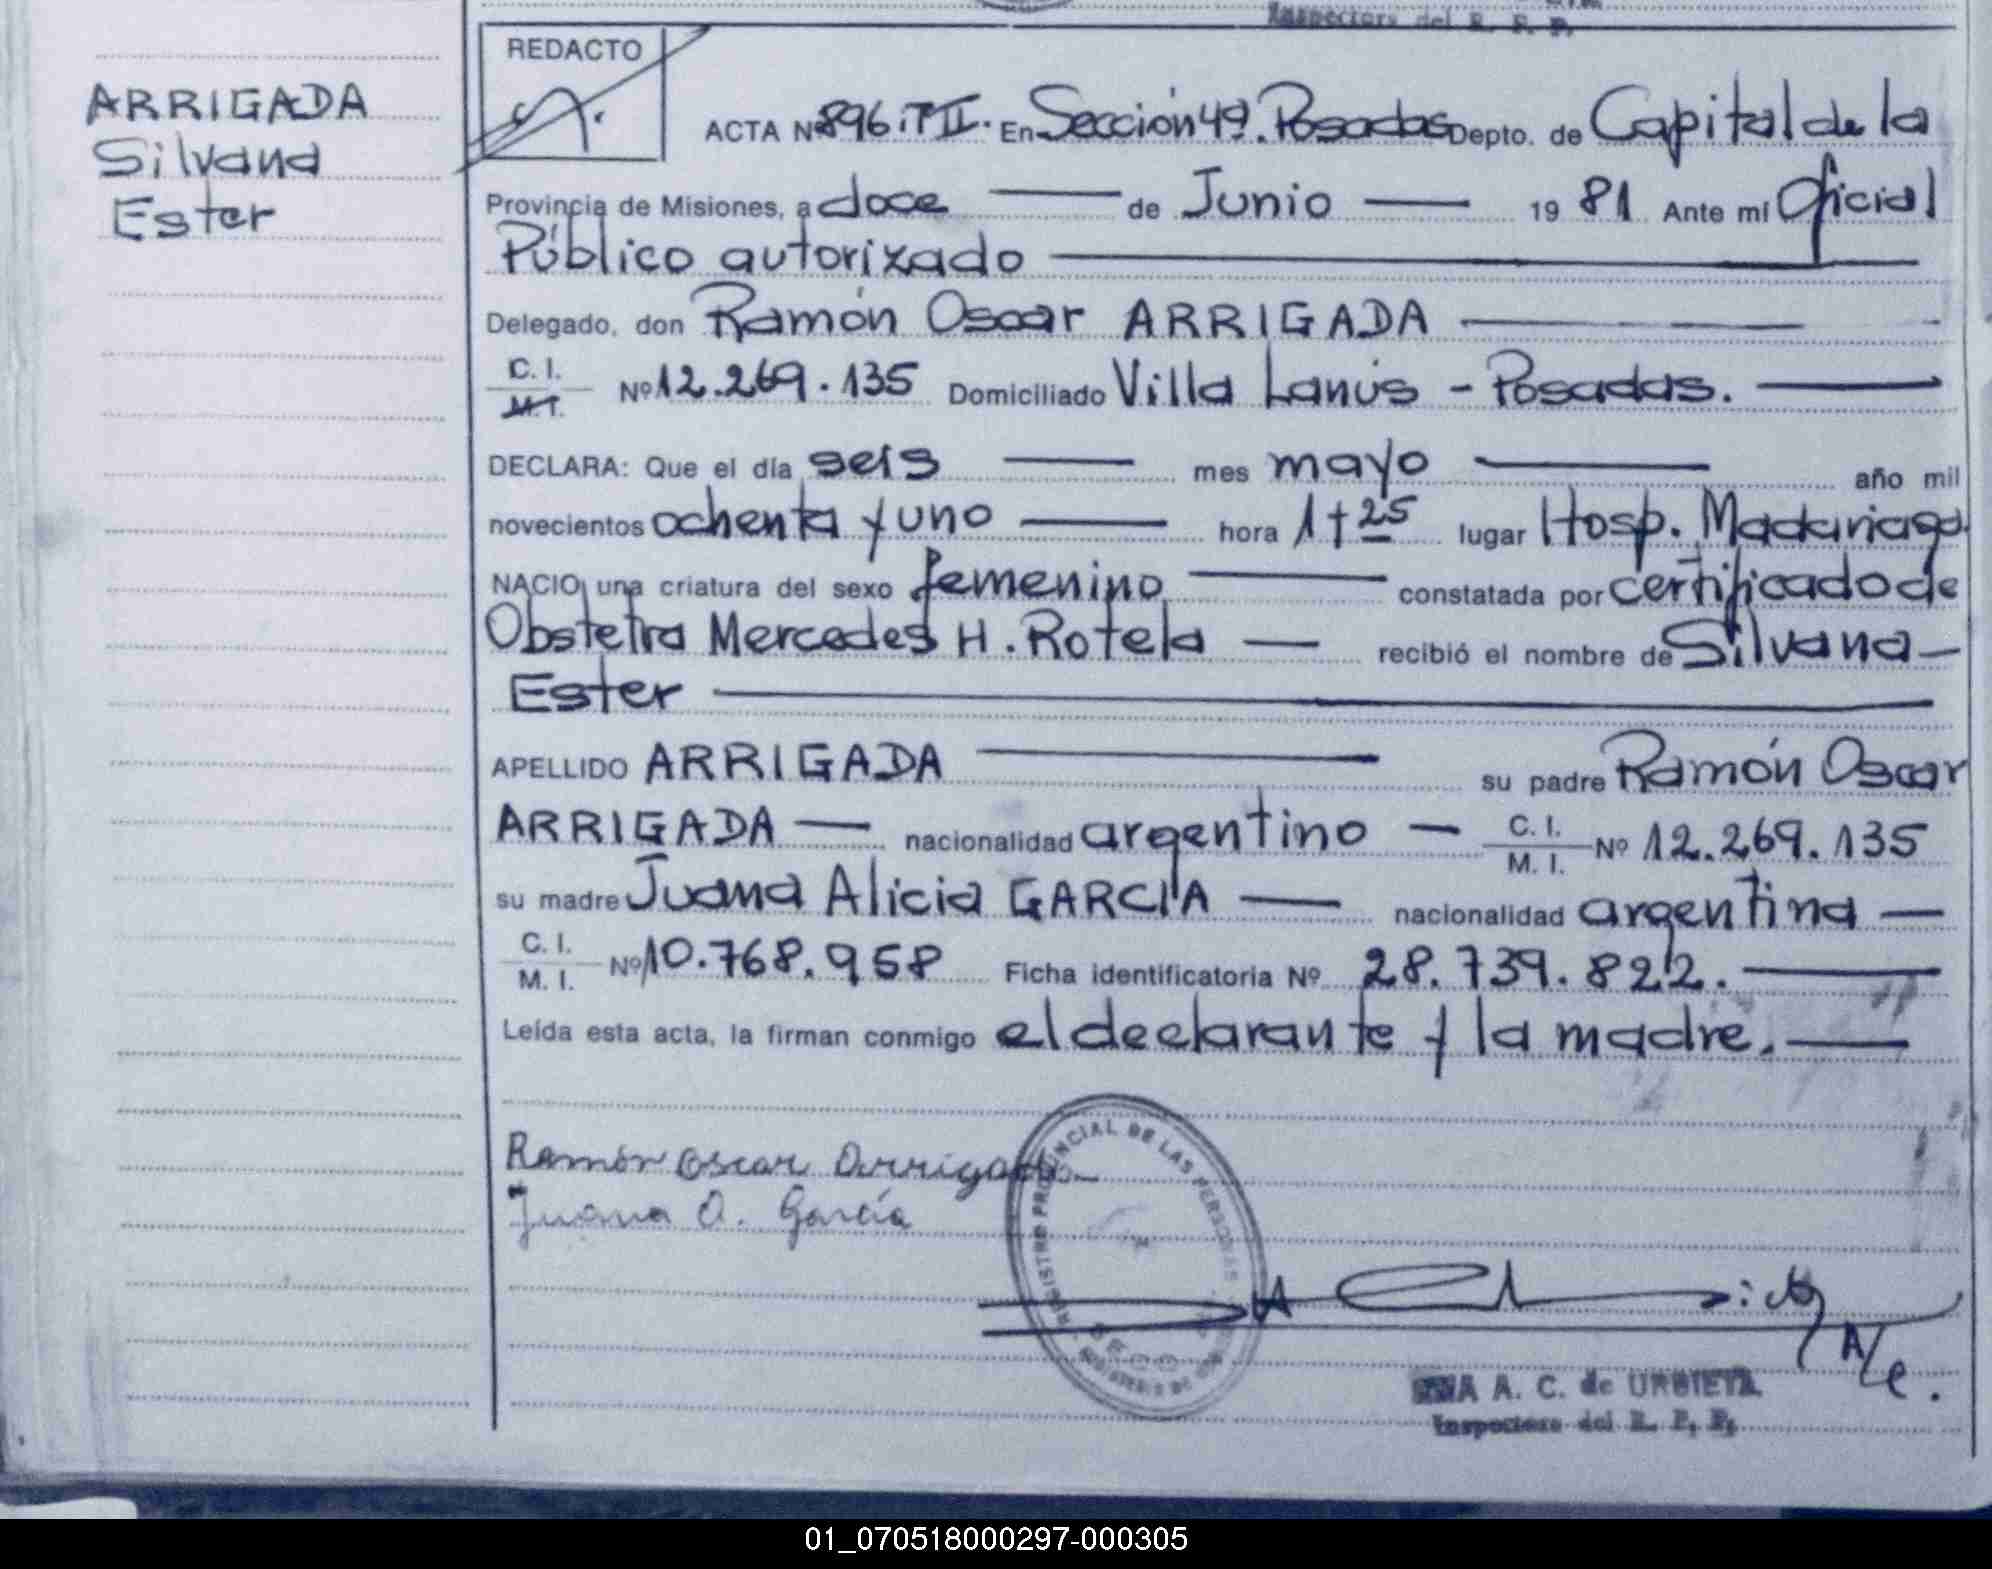 Inspectora del R. P. P.
REDACTO
ARRIGADA
Silvana
Ester
ACTA Nº 896.TII. En Sección 4ª. Posadas Depto. de Capital de la
Provincia de Misiones, a doce de Junio 19 81 Ante mi Oficial
Público autorizado
Delegado, don Ramón Oscar ARRIGADA
C. I.
M. I. Nº 12.269.135 Domiciliado Villa Lanús - Posadas.
DECLARA: Que el día seis mes mayo año mil
novecientos ochenta y uno hora 1 + 25 lugar Hosp. Madariaga
NACIO una criatura del sexo femenino constatada por certificado de
Obstetra Mercedes H. Rotela recibió el nombre de Silvana
Ester
APELLIDO ARRIGADA su padre Ramón Oscar
ARRIGADA nacionalidad argentino C. I.
M. I. Nº 12.269.135
su madre Juana Alicia GARCÍA nacionalidad argentina
C. I.
M. I. Nº 10.768.958 Ficha identificatoria Nº 28.739.822.
Leída esta acta, la firman conmigo el declarante y la madre.
Ramón Oscar Arrigada
Juana A. García
REGISTRO PROVINCIAL DE LAS PERSONAS
A/c.
A. C. de URBIETA
Inspectora del R. P. P.
01_070518000297-000305